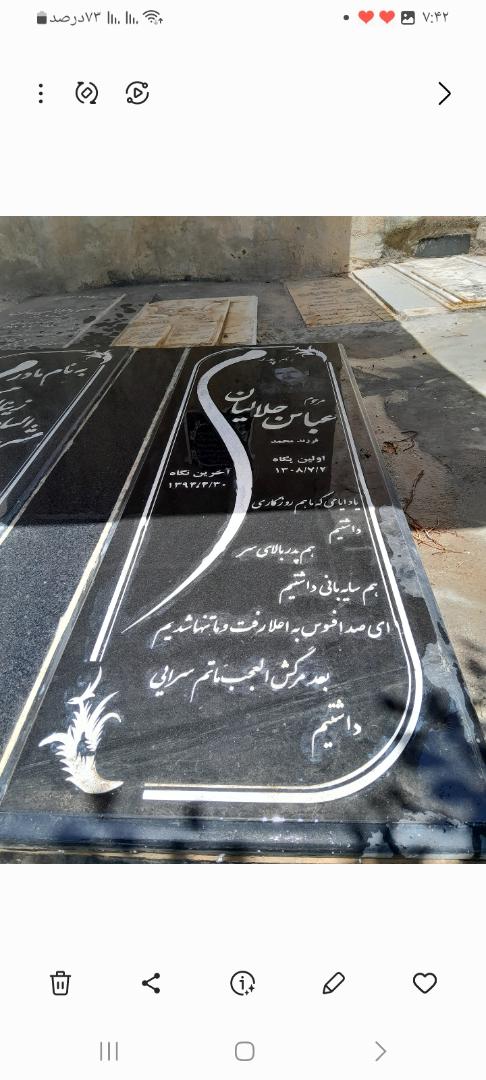 ۷:۴۲
۷۳درصد
به نام پدر
مرحوم
عباس جلالیان
فرزند محمد
اولین نگاه
۱۳۰۸/۷/۲
آخرین نگاه
۱۳۹۴/۴/۳۰
یاد ایامی که ما هم روزگاری
داشتیم
هم پدر بالای سر
هم سایه بانی داشتیم
ای صد افسوس به اعلا رفت و ما تنها شدیم
بعد مرگش العجب ماتم سرایی
داشتیم
به نام مادر